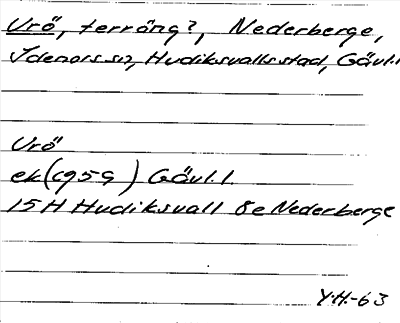 Urö, terräng?, Nederberge,
Idenors sn, Hudiksvalls stad, Gävl.l
Urö
ek(1959) Gävl.l.
15H Hudiksvall 8e Nederberge
Y.H.-63